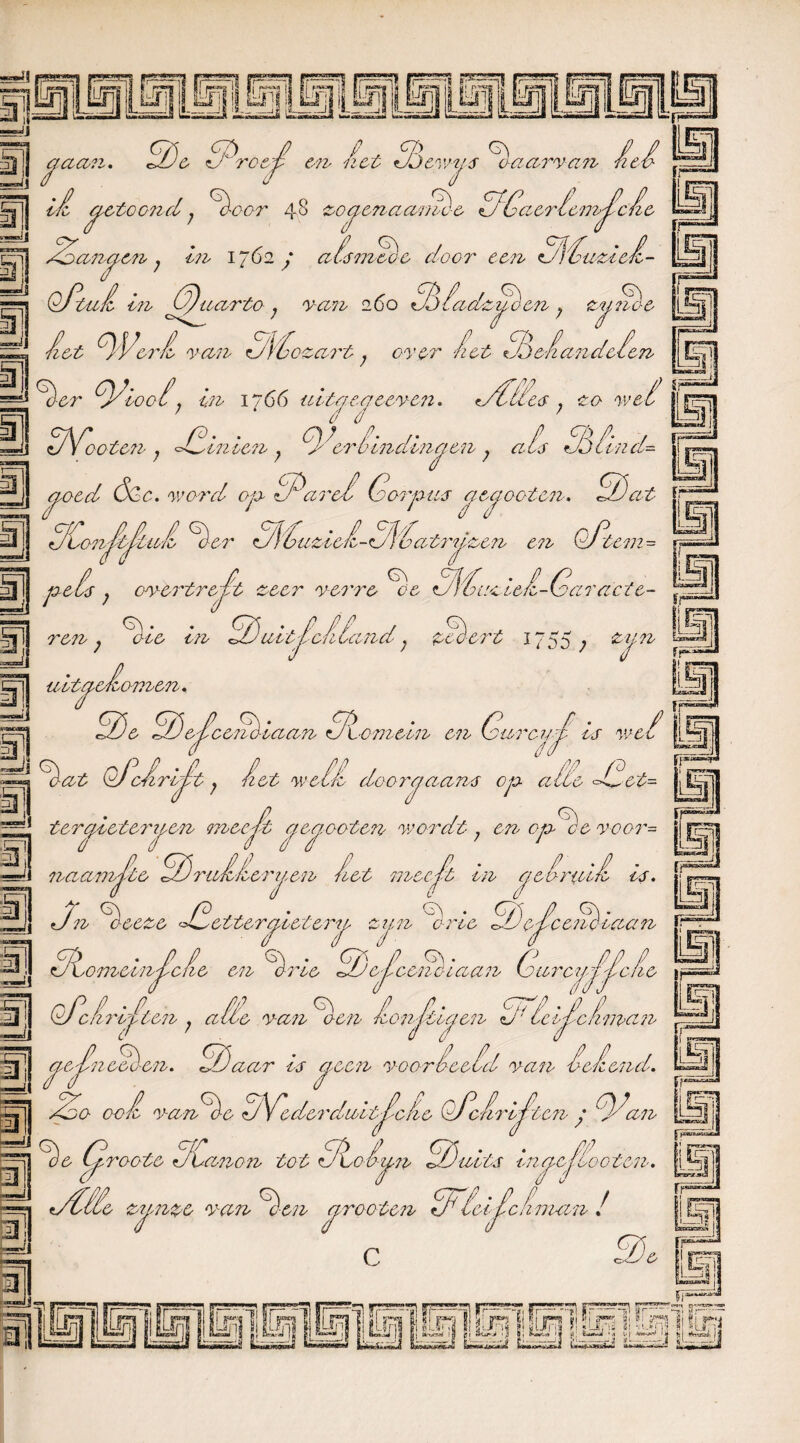 gaan. De Proef en het Bewys daarvan heb
ik getoond, door 48 zogenaamde Haerlemsche
Zangen, in 1762; alsmede door een Muziek-
Stuk in Quarto, van 260 Bladzyden, zynde
het Werk van Mozart, over het Behandelen
der Viool, in 1766 uitgegeeven. Alles, zo wel
Nooten, Linien, Verbindingen, als Blind=
goed &c. word op Parel Corpus gegooten. Dat
Konststuk der Muziek-Matryzen en Stem=
pels, overtreft zeer verre de Muziek-Caracte-
ren, die in Duitschland, zedert 1755, zyn
uitgekomen.
De Descendiaan Romein en Curcyf is wel
dat Schrift, het welk doorgaans op alle Let=
tergieteryen meest gegooten wordt, en op de voor=
naamste Drukkeryen het meest in gebruik is.
In deeze Lettergietery zyn drie Descendiaan
Romeinsche en drie Descendiaan Curcyfsche
Schriften, alle van den konstigen Fleischman
gesneeden. Daar is geen voorbeeld van bekend.
Zo ook van de Nederduitsche Schriften; Van
de Groote Kanon tot Robyn Duits ingeslooten.
Alle zynze van den grooten Fleischman!
C De